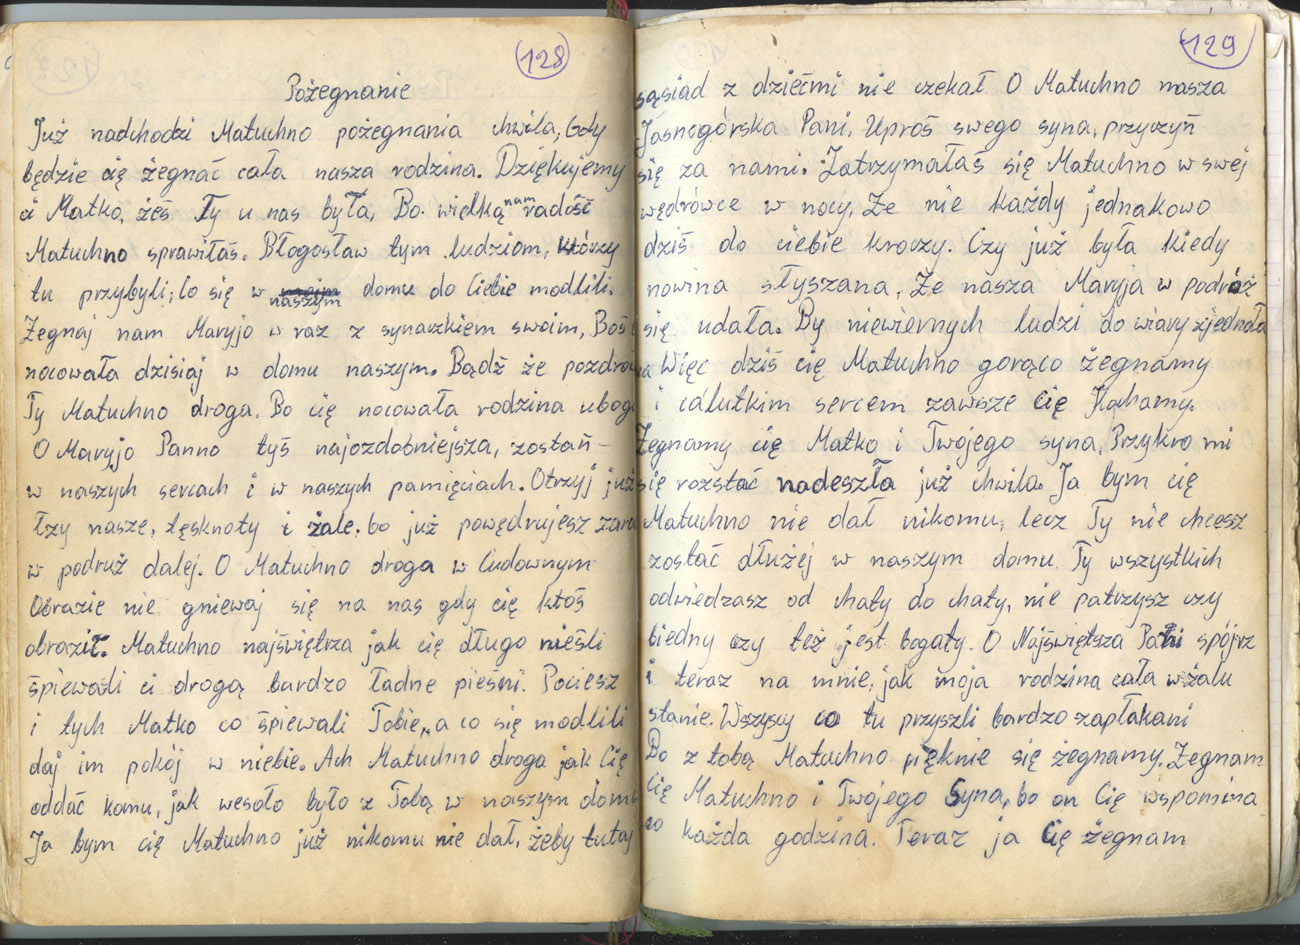 128
Pożegnanie
Już nadchodzi Matuchno pożegnania chwila, Gdy
będzie cię żegnać cała nasza rodzina. Dziękujemy
ci Matko, żeś Ty u nas była, Bo. wielką nam radość
Matuchno sprawiłaś. Błogosław tym ludziom, którzy
tu przybyli, Co się w naszym domu do Ciebie modlili.
Żegnaj nam Maryjo w raz z synaczkiem swoim, Boś
nocowała dzisiaj w domu naszym. Bądź że pozdro
Ty Matuchno droga. Bo cię nocowała rodzina uboga
O Maryjo Panno tyś najozdobniejsza, zostań –
w naszych sercach i w naszych pamięciach. Otrzyj już
łzy nasze, tęsknoty i żale. bo już powędrujesz zara
w podruż dalej. O Matuchno droga w Cudownym
Obrazie nie gniewaj się na nas gdy cię ktoś
obraził. Matuchno najświętrza jak cię długo nieśli
śpiewali ci drogą bardzo ładne pieśni. Pociesz
i tych Matko co śpiewali Tobie, a co się modlili
daj im pokój w niebie. Ach Matuchno droga jak Cię
oddać komu, jak wesoło było z Tobą w naszym domu
Ja bym cię Matuchno już nikomu nie dał, żeby tutaj
129
sąsiad z dziećmi nie czekał O Matuchno nasza
Jasnogórska Pani, Uproś swego syna, przyczyń
się za nami. Zatrzymałaś się Matuchno w swej
wędrówce w nocy, Że nie każdy jednakowo
dziś do ciebie kroczy. Czy już była kiedy
nowina słyszana, Że nasza Maryja w podróż
się udała. By niewiernych ludzi do wiary zjednała
Więc dziś cię Matuchno gorąco żegnamy
i calutkim sercem zawsze Cię Kochamy.
Żegnamy cię Matko i Twojego syna, Przykro mi
się rozstać nadeszła już chwila. Ja bym cię
Matuchno nie dał nikomu, lecz Ty nie chcesz
zostać dłużej w naszym domu. Ty wszystkich
odwiedzasz od chaty do chaty, nie patrzysz czy
biedny czy też jest bogaty. O Najświętsza Pani spójrz
i teraz na mnie, jak moja rodzina cała w żalu
stanie. Wszyscy co tu przyszli bardzo zapłakani
Bo z tobą Matuchno pięknie się żegnamy. Żegnam
Cię Matuchno i Twojego Syna, bo on Cię wspomina
co każda godzina. Teraz ja Cię żegnam